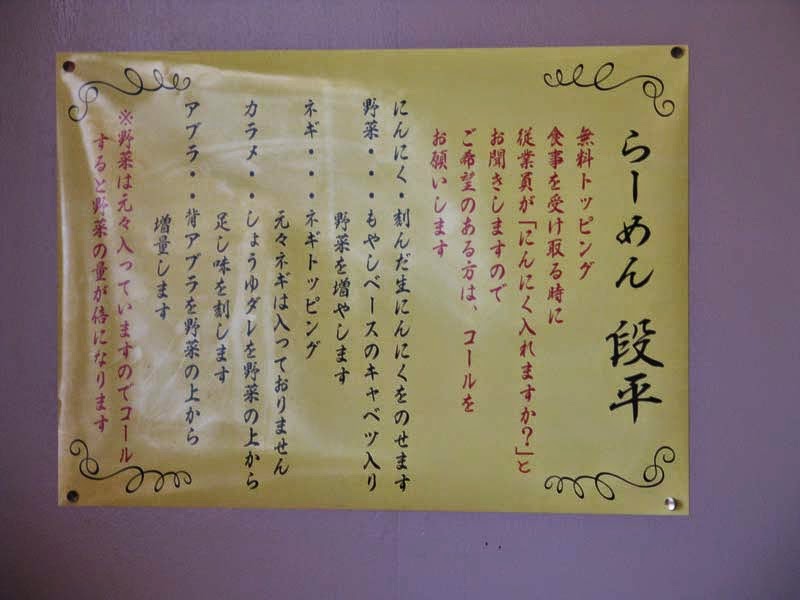 らーめん 段平
無料トッピング
食事を受け取る時に
従業員が「にんにく入れますか?」と
お聞きしますので
ご希望のある方は、コールを
お願いします
にんにく・刻んだ生にんにくをのせます
野菜・・・もやしベースのキャベツ入り
野菜を増やします
ネギ・・・ネギトッピング
元々ネギは入っておりません
カラメ・・しょうゆダレを野菜の上から
足し味を刻します
アブラ・・背アブラを野菜の上から
増量します
※野菜は元々入っていますのでコール
すると野菜の量が倍になります